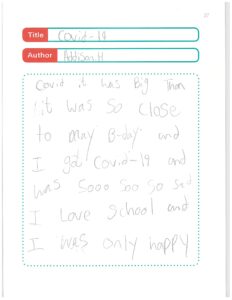 37
Title Covid-19
Author Addison.H
Covid it was Big Then
it was so close
to may B-day and
I got Covid-19 and
was Sooo Soo So sad
I Love School and
I was only happy